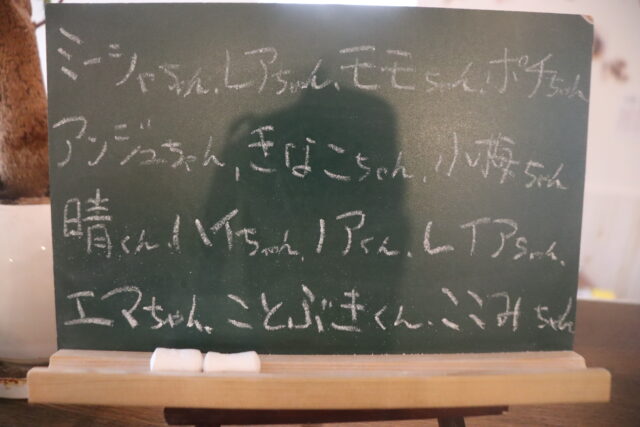 ミーシャちゃん、レアちゃん、モモちゃん、ポチちゃん
アンジュちゃん、きなこちゃん、小梅ちゃん
晴くん、ハイちゃん、ノアくん、レイアちゃん、
エマちゃん、ことぶきくん、ここみちゃん